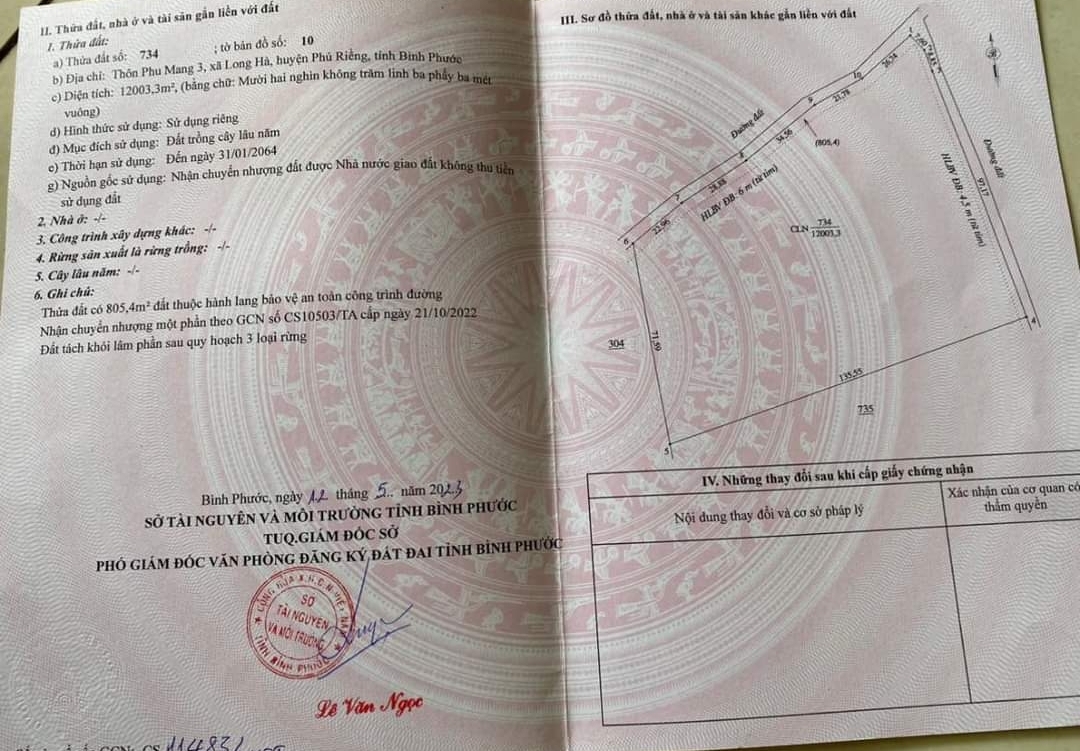 II. Thửa đất, nhà ở và tài sản gắn liền với đất
1. Thửa đất:
a) Thửa đất số: 734 ; tờ bản đồ số: 10
b) Địa chỉ: Thôn Phu Mang 3, xã Long Hà, huyện Phú Riềng, tỉnh Bình Phước
c) Diện tích: 12003,3m², (bằng chữ: Mười hai nghìn không trăm linh ba phẩy ba mét
vuông)
d) Hình thức sử dụng: Sử dụng riêng
đ) Mục đích sử dụng: Đất trồng cây lâu năm
e) Thời hạn sử dụng: Đến ngày 31/01/2064
g) Nguồn gốc sử dụng: Nhận chuyển nhượng đất được Nhà nước giao đất không thu tiền
sử dụng đất
2. Nhà ở: -/-
3. Công trình xây dựng khác: -/-
4. Rừng sản xuất là rừng trồng: -/-
5. Cây lâu năm: -/-
6. Ghi chú:
Thửa đất có 805,4m² đất thuộc hành lang bảo vệ an toàn công trình đường
Nhận chuyển nhượng một phần theo GCN số CS10503/TA cấp ngày 21/10/2022
Đất tách khỏi lâm phần sau quy hoạch 3 loại rừng
Bình Phước, ngày 12 tháng 5.. năm 2023
SỞ TÀI NGUYÊN VÀ MÔI TRƯỜNG TỈNH BÌNH PHƯỚC
TUQ.GIÁM ĐỐC SỞ
PHÓ GIÁM ĐỐC VĂN PHÒNG ĐĂNG KÝ ĐẤT ĐAI TỈNH BÌNH PHƯỚC
CỘNG HÒA X.H.C.N VIỆT NAM
SỞ
TÀI NGUYÊN
VÀ MÔI TRƯỜNG
TỈNH BÌNH PHƯỚC
Lê Văn Ngọc
III. Sơ đồ thửa đất, nhà ở và tài sản khác gắn liền với đất
1
7,00
26,54
10
21,78
9
Đường đất
34,56
(805,4)
8
28,88
HLBV ĐB: 6 m (từ tim)
7
22,96
6
Đường đất
97,17
HLBV ĐB: 4,5 m (từ tim)
CLN 734
12003,3
4
71,99
304
135,55
735
5
IV. Những thay đổi sau khi cấp giấy chứng nhận
Nội dung thay đổi và cơ sở pháp lý
Xác nhận của cơ quan có
thẩm quyền